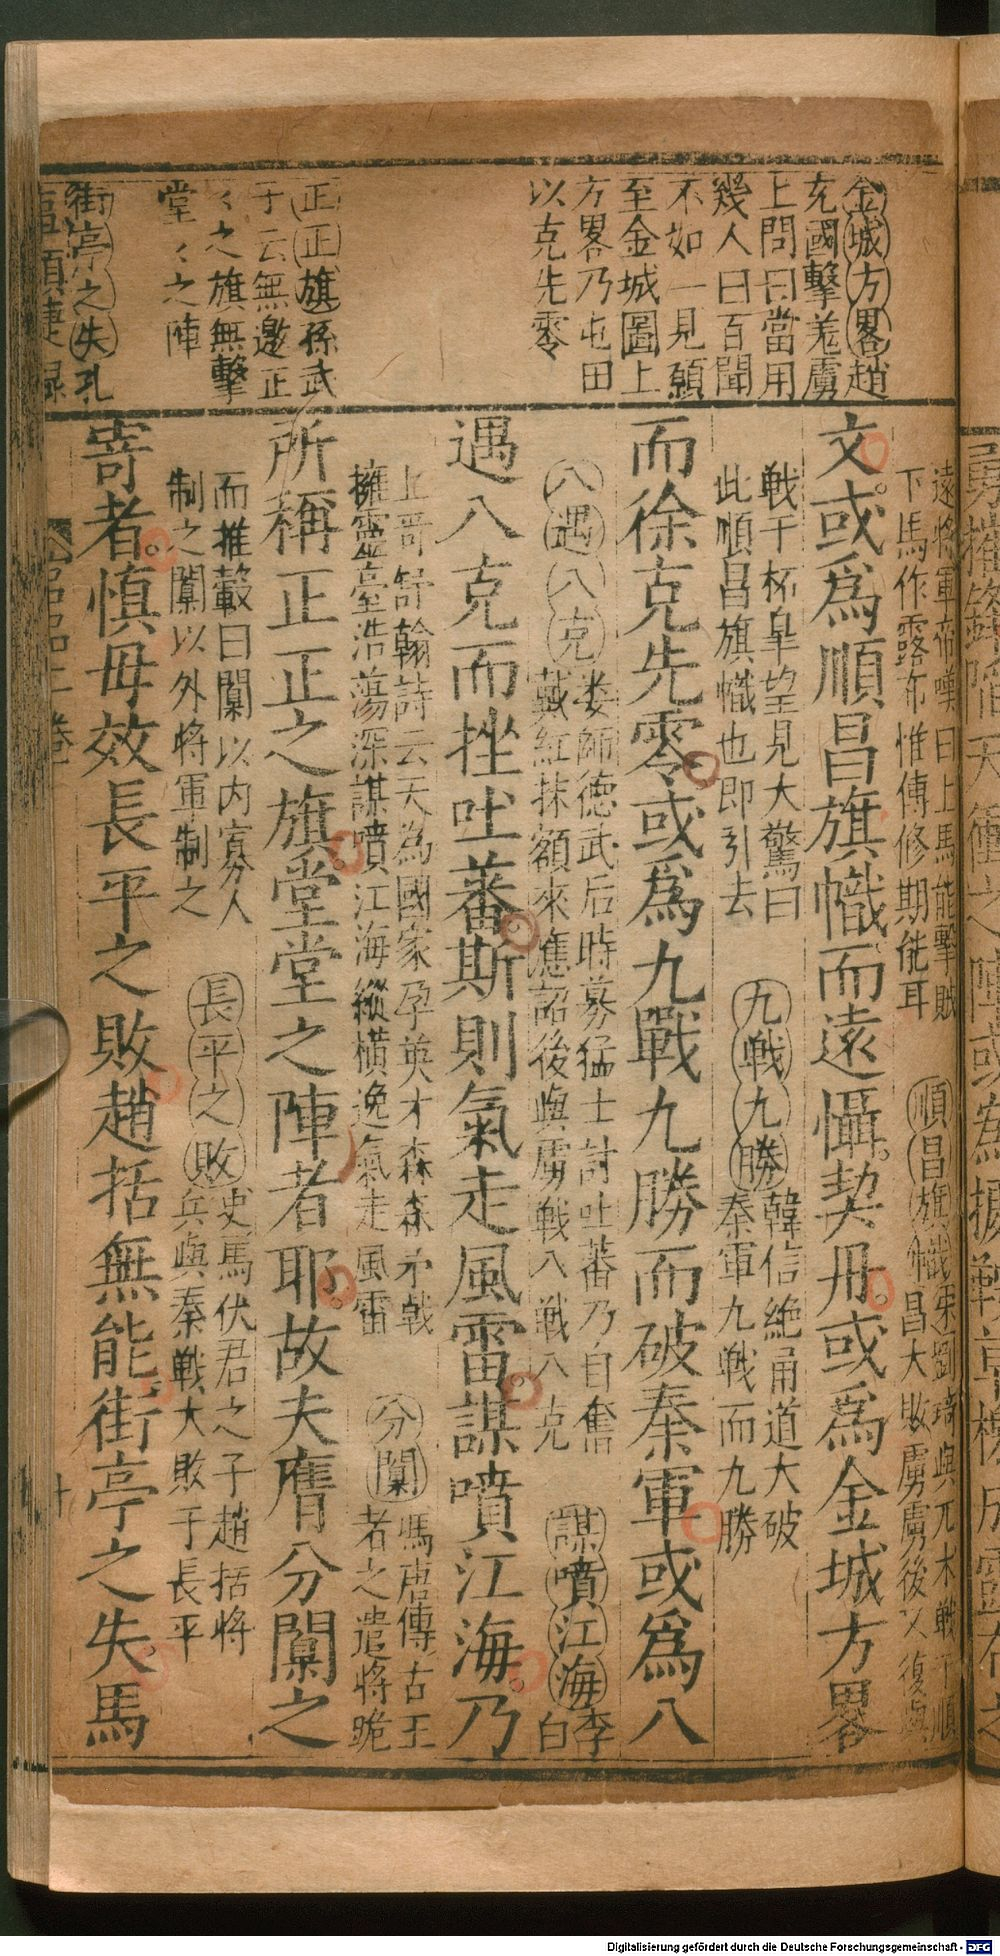 金城方畧趙
充國擊羗虜
上問曰當用
幾人曰百聞
不如一見願
至金城圖上
方畧乃屯田
以克先零
正正旗孫武
子云無邀正
〻之旗無擊
堂〻之陣
街亭之失孔
遠將軍帝嘆曰上馬能擊賊
下馬作露布惟傅修期能耳
順昌旗幟宋劉琦與兀朮戰于順
昌大敗虜虜後又復與
文或爲順昌旗幟而遠懾契丹或爲金城方畧
戦于柘皐望見大驚曰
此順昌旗幟也即引去
九戦九勝韓信絶甬道大破
秦軍九戦而九勝
而徐克先零或爲九戰九勝而破秦軍或爲八
八遇八克娄師德武后時募猛士討吐蕃乃自奮
戴紅抹額來應詔後與虜戦八戦八克
謀噴江海李
白
遇八克而挫吐蕃斯則氣走風雷謀噴江海乃
上哥舒翰詩云天為國家孕英才森森矛戟
擁靈臺浩蕩深謀噴江海縱橫逸氣走風雷
分閫馮唐傳古王
者之遣將跪
所稱正正之旗堂堂之陣者耶故夫膺分閫之
而推轂曰閫以内寡人
制之閫以外將軍制之
長平之敗史馬伏君之子趙括將
兵與秦戦大敗于長平
寄者慎毋效長平之敗趙括無能街亭之失馬
十
Digitalisierung gefördert durch die Deutsche Forschungsgemeinschaft - DFG